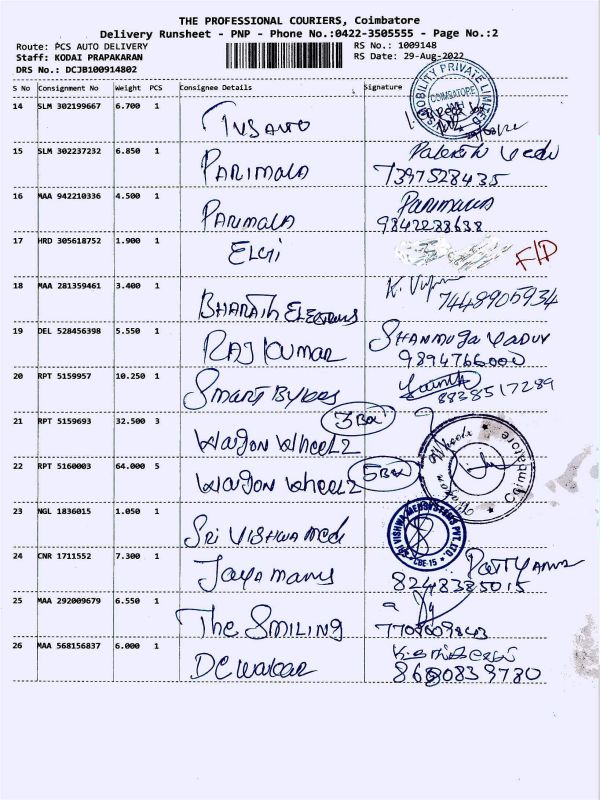 THE PROFESSIONAL COURIERS, Coimbatore
Delivery Runsheet - PNP - Phone No.:0422-3505555 - Page No.:2
Route: PCS AUTO DELIVERY RS No.: 1009148
Staff: KODAI PRAPAKARAN RS Date: 29-Aug-2022
DRS No.: DCJB100914802
S No Consignment No Weight PCS Consignee Details Signature
14 SLM 302199667 6.700 1 TVS AUTO
MOBILITY PRIVATE LIMITED
COIMBATORE
15 SLM 302237232 6.850 1 PARIMALA
7397528435
16 MAA 942210336 4.500 1 PARIMALA Parimala
9842288638
17 HRD 305618752 1.900 1 ELGI F/D
18 MAA 281359461 3.400 1 BHARATH ELECTRONS K.
7448905934
19 DEL 528456398 5.550 1 RAJ KUMAR SHANMUGA
9894766000
20 RPT 5159957 10.250 1 SMART BYKES
8838517289
21 RPT 5159693 32.500 3 WAGON WHEELZ 3 Box
22 RPT 5160003 64.000 5 WAGON WHEELZ 5 Box
Wagon Wheelz Coimbatore
23 NGL 1836015 1.050 1 SRI VISHWA MEDI
SRI VISHWA MEDISYSTEMS PVT. LTD.
CBE-15
24 CNR 1711552 7.300 1 JAYAMARUS
8248385015
25 MAA 292009679 6.550 1 The SMILING
26 MAA 568156837 6.000 1 DEWAKAR
8680839780